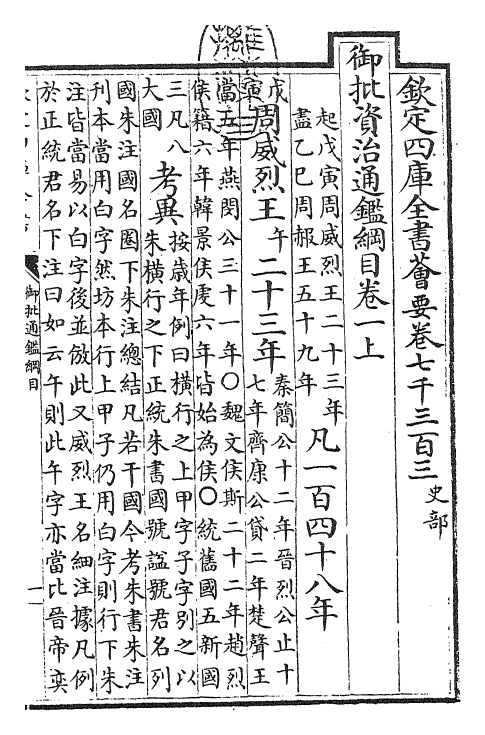 欽定四庫全書薈要卷七千三百三 史部
御批資治通鑑綱目卷一上
起戊寅周威烈王二十三年
盡乙巳周赧王五十九年
凡一百四十八年
戊寅 周威烈王午二十三年
秦簡公十二年晉烈公止十
七年齊康公貸二年楚聲王
當五年燕閔公三十一年○魏文侯斯二十二年趙烈
侯籍六年韓景侯虔六年皆始為侯○統舊國五新國
三凡八
大國
考異
按歲年例曰横行之上甲字子字别之以
朱横行之下正統朱書國號諡號君名列
國朱注國名圏下朱注總結凡若干國今考朱書朱注
刋本當用白字然坊本行上甲子仍用白字則行下朱
注皆當易以白字後並倣此又威烈王名細注據凡例
於正統君名下注曰如云午則此午字亦當比晉帝奕
御批通鑑綱目
一